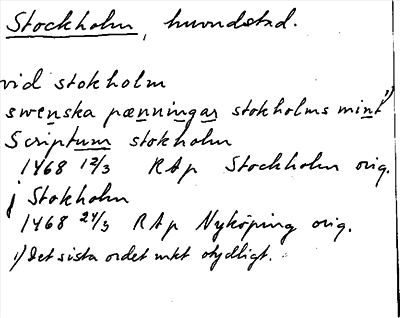 Stockholm, huvudstad.
vid stokholm
swenska pænningar stokholms mint 1)
Scriptum stokholm
1468 12/3 RAp Stockholm orig.
j Stokholm
1468 24/3 RAp Nyköping orig.
1) Det sista ordet mkt otydligt.